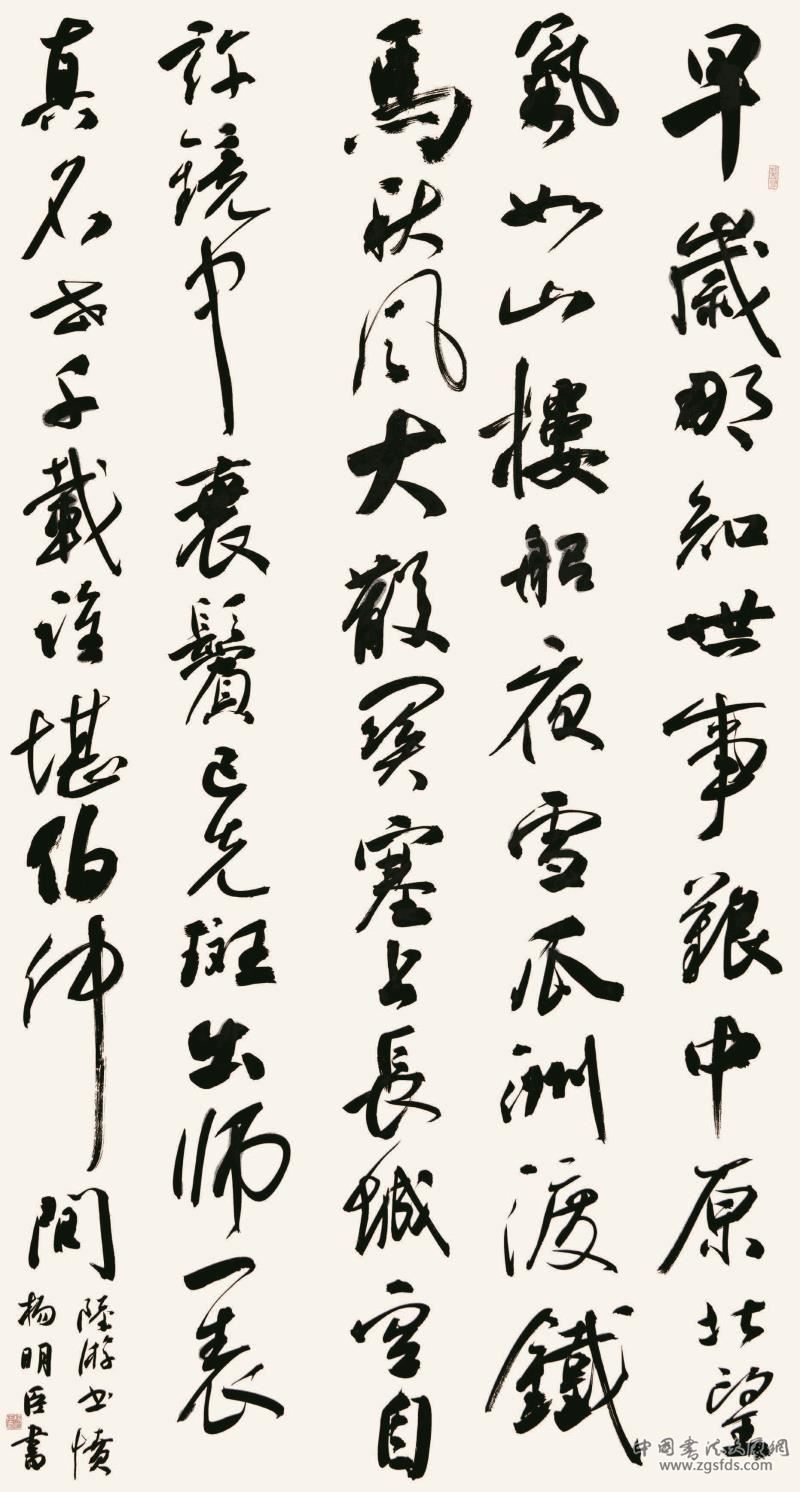 早歲那知世事艱中原北望
氣如山樓船夜雪瓜洲渡鐵
馬秋風大散關塞上長城空自
許鏡中衰鬢已先斑出師一表
真名世千載誰堪伯仲間
陸游书憤
楊明臣書
www.zgsfds.com